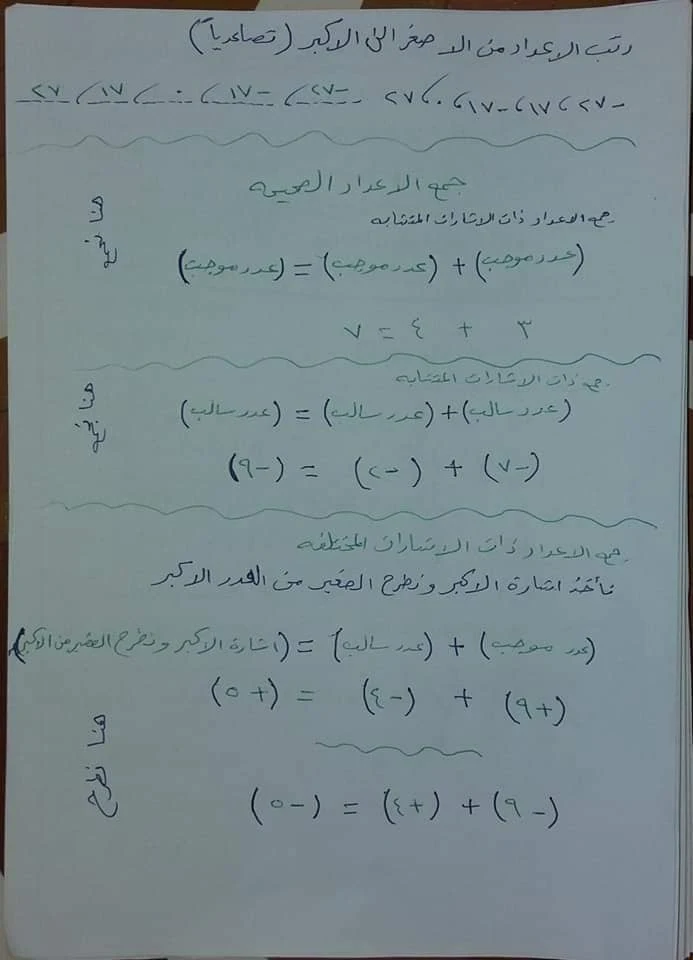 رتب الاعداد من الاصغر الى الاكبر (تصاعدياً)
-٢٧ ، ١٧ ، -١٧ ، ٠ ، ٢٧ -٢٧ ، -١٧ ، ٠ ، ١٧ ، ٢٧
جمع الاعداد الصحيحه
جمع الاعداد ذات الاشارات المتشابه
هنا نجمع
(عدد موجب) + (عدد موجب) = (عدد موجب)
٣ + ٤ = ٧
جمع ذات الاشارات المتشابه
هنا نجمع
(عدد سالب) + (عدد سالب) = (عدد سالب)
(-٧) + (-٢) = (-٩)
جمع الاعداد ذات الاشارات المختلفه
نأخذ اشارة الاكبر ونطرح الصغير من العدد الاكبر
(عدد موجب) + (عدد سالب) = (اشارة الاكبر ونطرح الصغير من الاكبر)
(+٩) + (-٤) = (+٥)
هنا نطرح
(-٩) + (+٤) = (-٥)